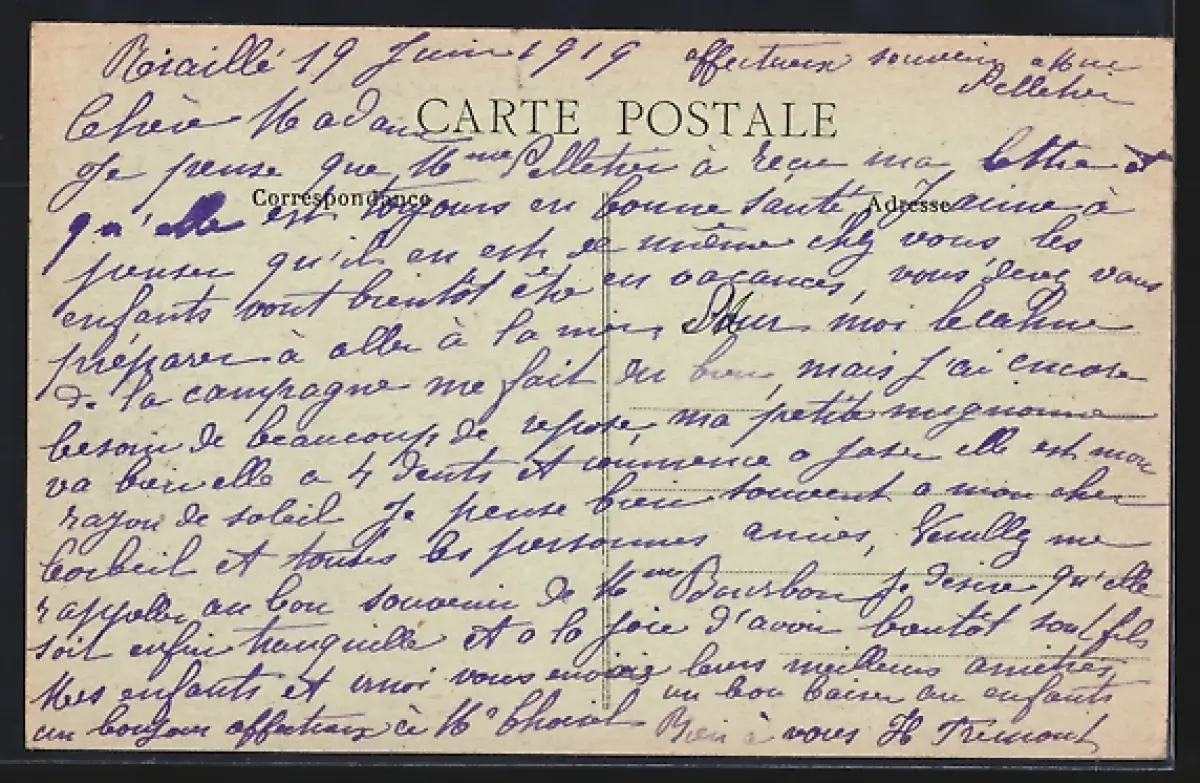 Riaillé 19 Juin 1919 affectueux souvenir a Mme
Pelletier
Chère Madame
CARTE POSTALE
Je pense que Mme Pelletier à reçu ma lettre et
Correspondance
Adresse
qu'elle est toujours en bonne santé, J'aime à
penser qu'il en est de même chez vous les
enfants vont bientôt être en vacances, vous devez vous
préparer à aller à la mer, Pour moi le calme
de la campagne me fait du bien, mais j'ai encore
besoin de beaucoup de repose, ma petite mignonne
va bien elle a 4 dents et commence a jaser elle est mon
rayon de soleil Je pense bien souvent a mon cher
Corbeil et toutes les personnes amies, Veuillez me
rappeller au bon souvenir de Mme Bourbon je désire qu'elle
soit enfin tranquille et a la joie d'avoir bientôt son fils
Mes enfants et moi vous envoie leurs meilleurs amitiés,
un bon baiser au enfants
un bonjour affectueux à Mr
Bien à vous H Tremont